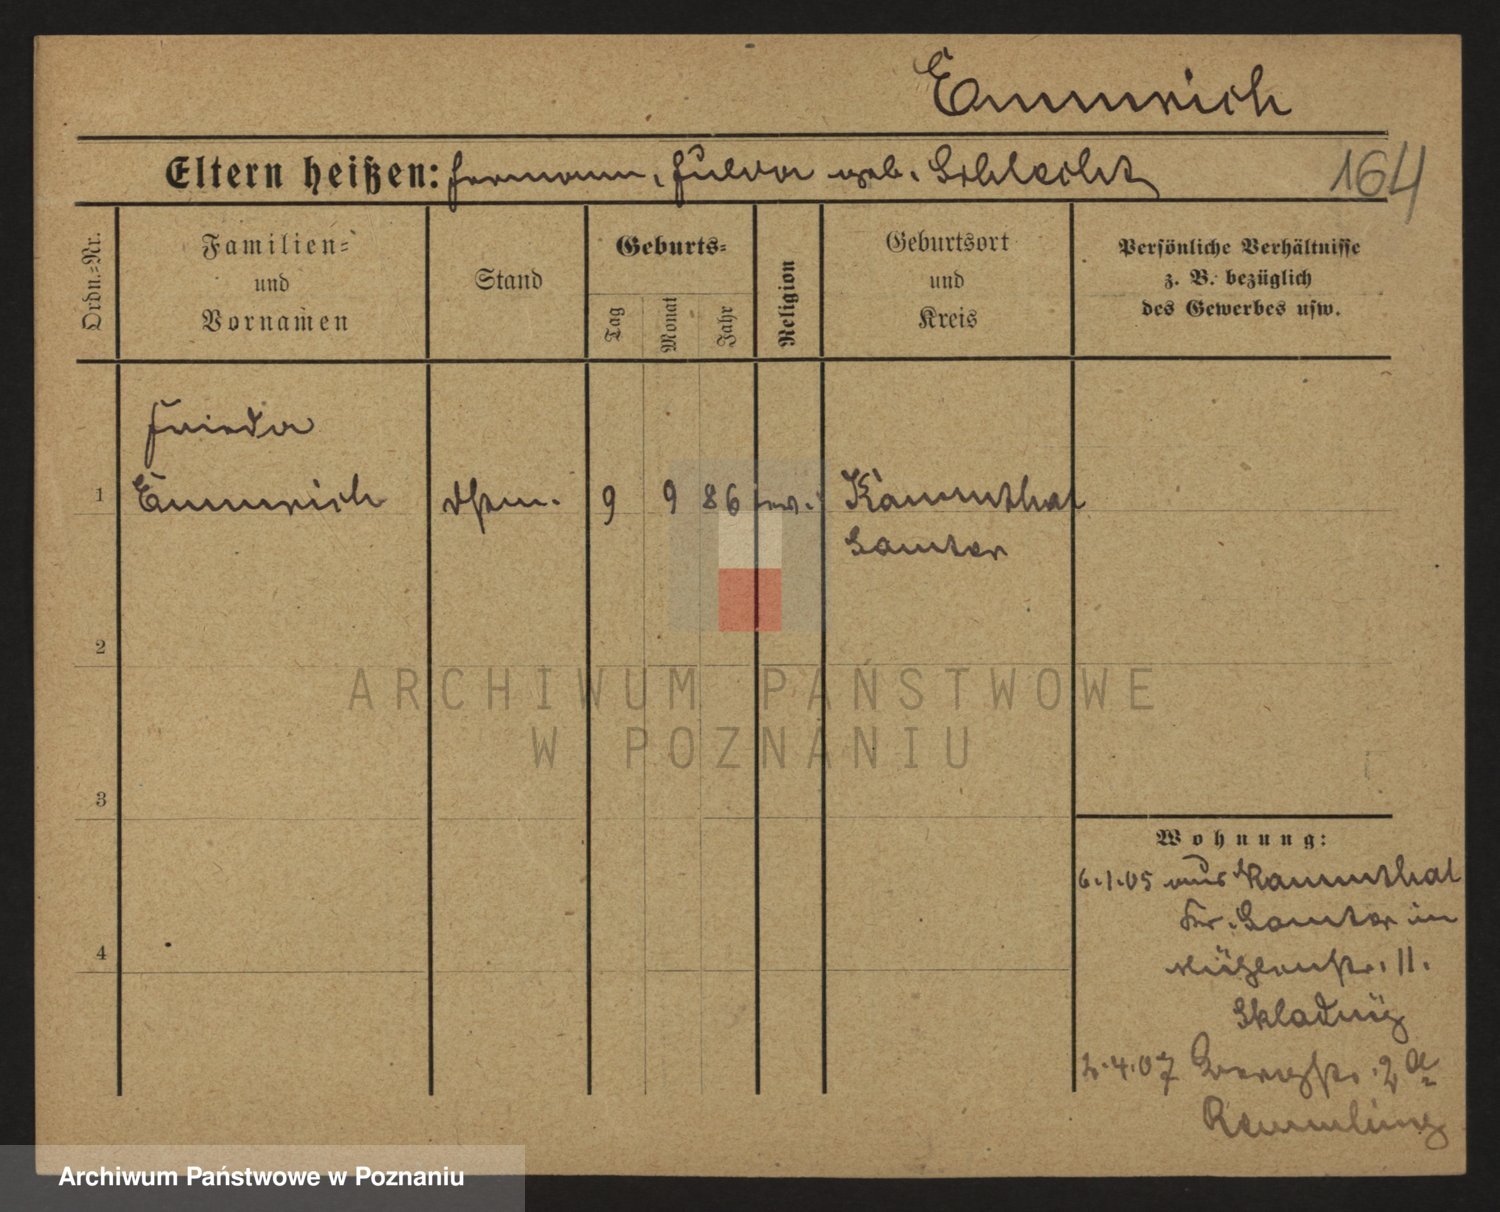 Emmrich
Eltern heißen: Hermann, Hulda geb. Schlecht
164
Ordn.=Nr.
Familien=
und
Vornamen
Stand
Geburts=
Tag
Monat
Jahr
Religion
Geburtsort
und
Kreis
Persönliche Verhältnisse
z. B. bezüglich
des Gewerbes usw.
Frieda
1 Emmrich 9 9 86 ev. Kammthal
Samter
2
3
4
ARCHIWUM PAŃSTWOWE
W POZNANIU
Wohnung:
6.1.05 aus Kammthal
Kr. Samter in
Mühlenstr. 11.
2.4.07 Bergstr. 2a
Remmling
Archiwum Państwowe w Poznaniu